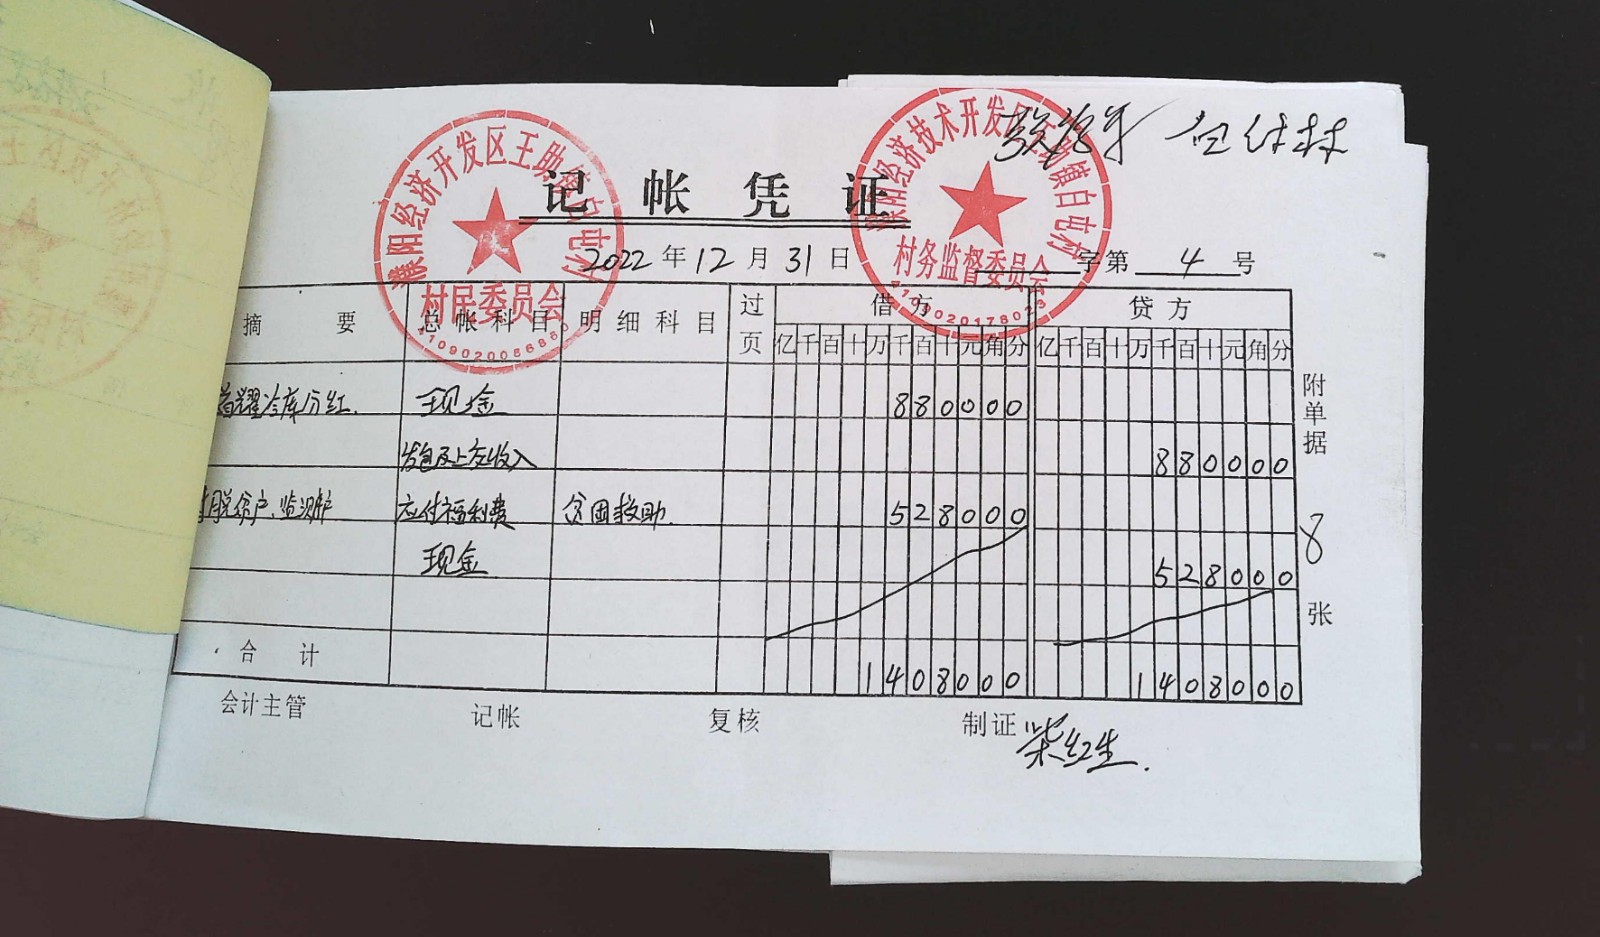 记帐凭证
2022年12月31日
字第4号
濮阳经济开发区王助镇白屯村
村民委员会
4109020086880
濮阳经济技术开发区王助镇白屯村
村务监督委员会
4109020178023
白仕林
摘要 总帐科目 明细科目 过页 借方 贷方
亿千百十万千百十元角分 亿千百十万千百十元角分
耀冷库分红. 现金 880000
发包及上交收入 880000
脱贫户、监测户 应付福利费 贫困救助. 528000
现金 528000
合计 1408000 1408000
附单据8张
会计主管 记帐 复核 制证 柴红生.